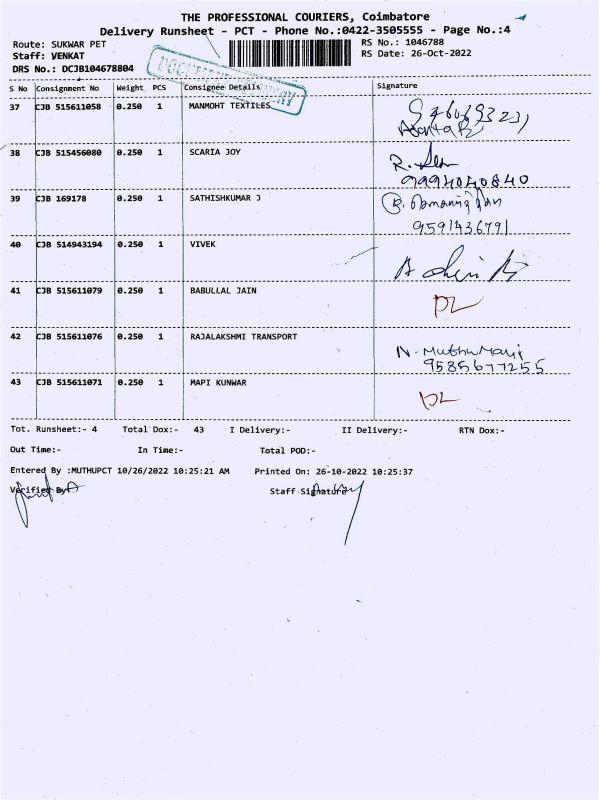 THE PROFESSIONAL COURIERS, Coimbatore
Delivery Runsheet - PCT - Phone No.:0422-3505555 - Page No.:4
Route: SUKWAR PET RS No.: 1046788
Staff: VENKAT RS Date: 26-Oct-2022
DRS No.: DCJB104678804
S No Consignment No Weight PCS Consignee Details Signature
37 CJB 515611058 0.250 1 MANMOHT TEXTILES
38 CJB 515456080 0.250 1 SCARIA JOY R.
9994040840
39 CJB 169178 0.250 1 SATHISHKUMAR J
9591436791
40 CJB 514943194 0.250 1 VIVEK
41 CJB 515611079 0.250 1 BABULLAL JAIN DL
42 CJB 515611076 0.250 1 RAJALAKSHMI TRANSPORT
9585677255
43 CJB 515611071 0.250 1 MAPI KUNWAR DL
Tot. Runsheet:- 4 Total Dox:- 43 I Delivery:- II Delivery:- RTN Dox:-
Out Time:- In Time:- Total POD:-
Entered By :MUTHUPCT 10/26/2022 10:25:21 AM Printed On: 26-10-2022 10:25:37
Verified By Staff Signature